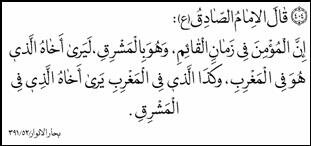 ٤٠٤ قَالَ الإِمَامُ الصَّادِقُ (ع):
إِنَّ الْمُؤْمِنَ فِي زَمَانِ الْقَائِمِ، وَهُوَ بِالْمَشْرِقِ، لَيَرىٰ أَخَاهُ الَّذي
هُوَ فِي الْمَغْرِبِ، وَكَذَا الَّذي فِي الْمَغْرِبِ يَرىٰ أَخَاهُ الَّذِي فِي
الْمَشْرِقِ.
بحار الانوار ٣٩١/٥٢